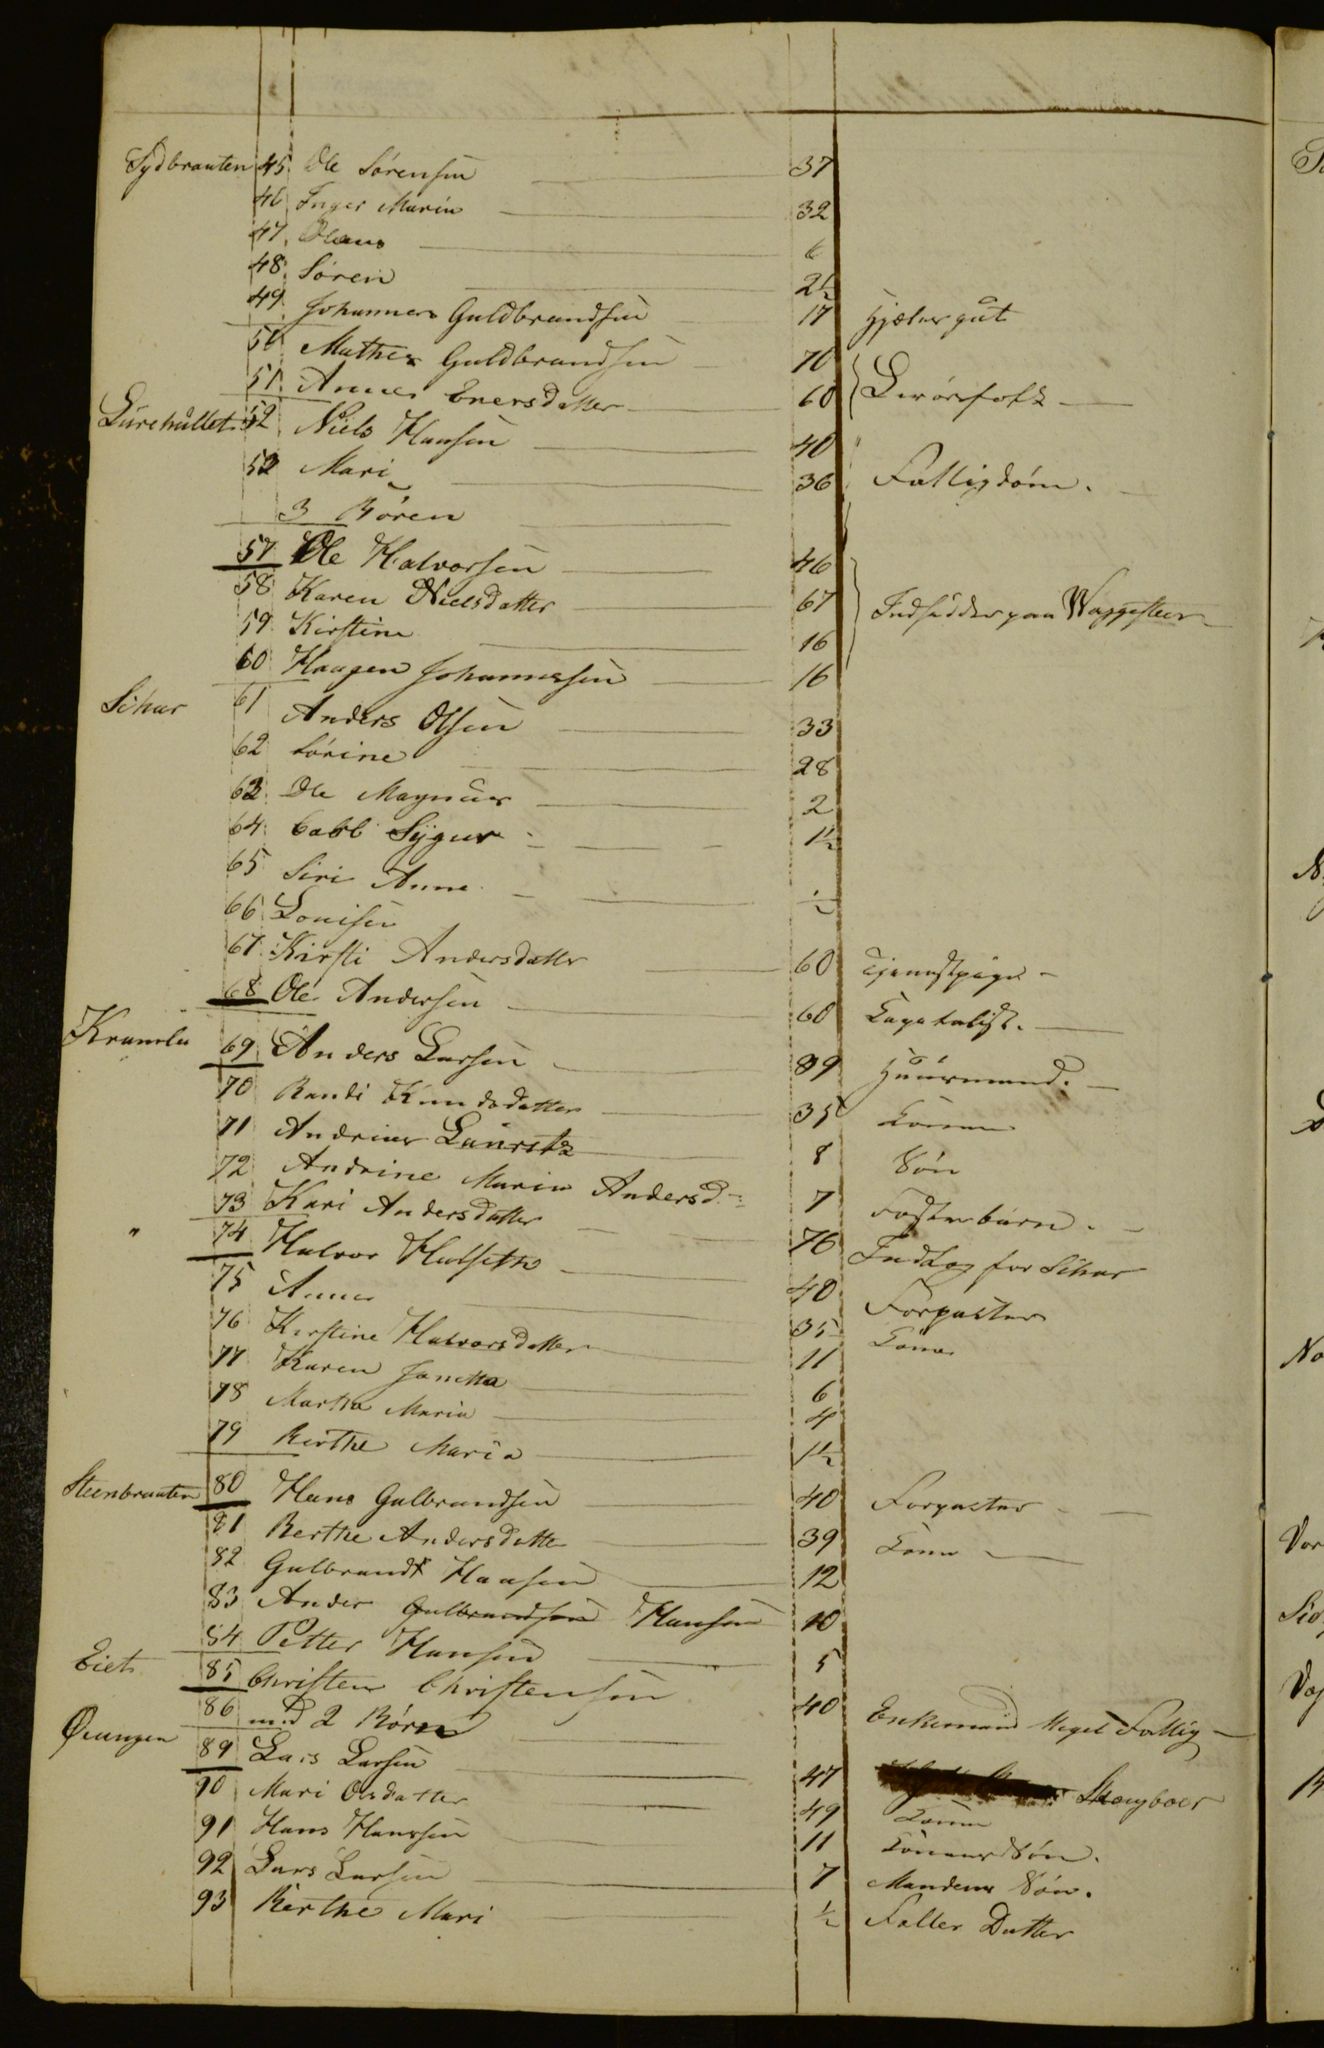 Sydbraaten 45 Ole Sørensen 37
46 Inger Maria 32
47 Olaus 6
48 Søren 2½
49 Johannes Guldbrandsen 17 Gjætergut
50 Mathes Guldbrandsen 70
51 Anne Enersdatter 60 Leiørfolk
Lurehullet 52 Niels Hansen 40
53 Mari 36 Fattigdom.
3 Børen
57 Ole Halvorsen 46
58 Karen Nielsdatter 67 Indsidder paa Waggesteen
59 Kirstine 16
60 Haagen Johannessen 16
Sihur 61 Anders Olsen 33
62 Sørine 28
63 Ole Magnus 2
64 Carl Sygur 1½
65 Siri Anne ½
66 Louise
67 Kirsti Andersdatter 60 Tjenestpige
68 Ole Andersen 60 Kapitalist.
69 Anders Larsen 39 Huusmand.
70 Randi Knudsdatter 35 Kone
71 Andreas Lauritz 8 Søn
72 Andrine Maria Andersd. 7 Fosterbarn.
73 Kari Andersdatter 76 Indlag for Sihur
" 74 Halvor Hulseth 40 Forpagter
75 Anne 35 Kone
76 Kirstine Halvorsdatter 11
77 Karen Janetta 6
78 Martha Maria 4
79 Berthe Maria 1½
Steenbraaten 80 Hans Gulbrandsen 40 Forpagter
81 Berthe Andersdatter 39 Kone
82 Gulbrandt Hansen 12
83 Ander Gulbrandsen Hansen 10
84 Petter Hansen 5
Eiet 85 Christen Christensen 40 Enkemand Meget Fattig
86 med 2 Børn
89 Lars Larsen 47 Skougboer
90 Mari Olsdatter 49 Kone
91 Hans Hanssen 11 Konens Søn.
92 Lars Larsen 7 Mandens Søn.
93 Berthe Mari ½ Falles Datter